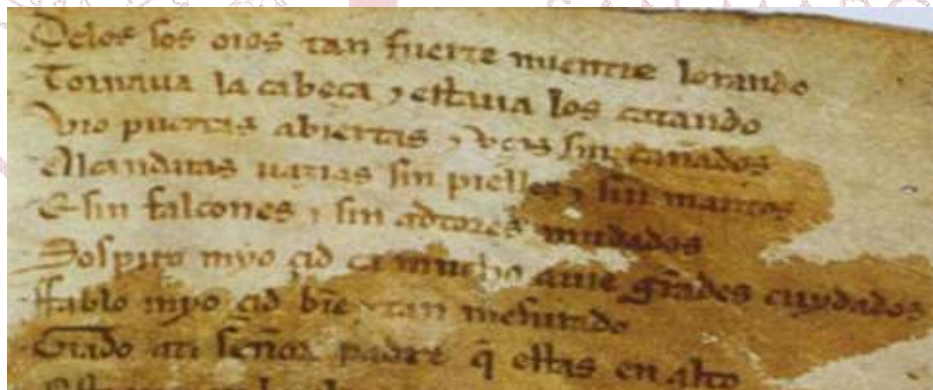 Delos sos oios tan fuerte mientre lorando
Tornaua la cabeça ⁊ estaua los catando
Vio puertas abiertas ⁊ vços sin cañados
Alcandaras uazias sin pielles ⁊ sin mantos
E sin falcones ⁊ sin adtores mudados
Sospiro myo çid ca mucho auie grãdes cuydados
Ffablo myo çid bĩe ⁊ tan mesurado
Grado ati señor padre q̃ estas en alto